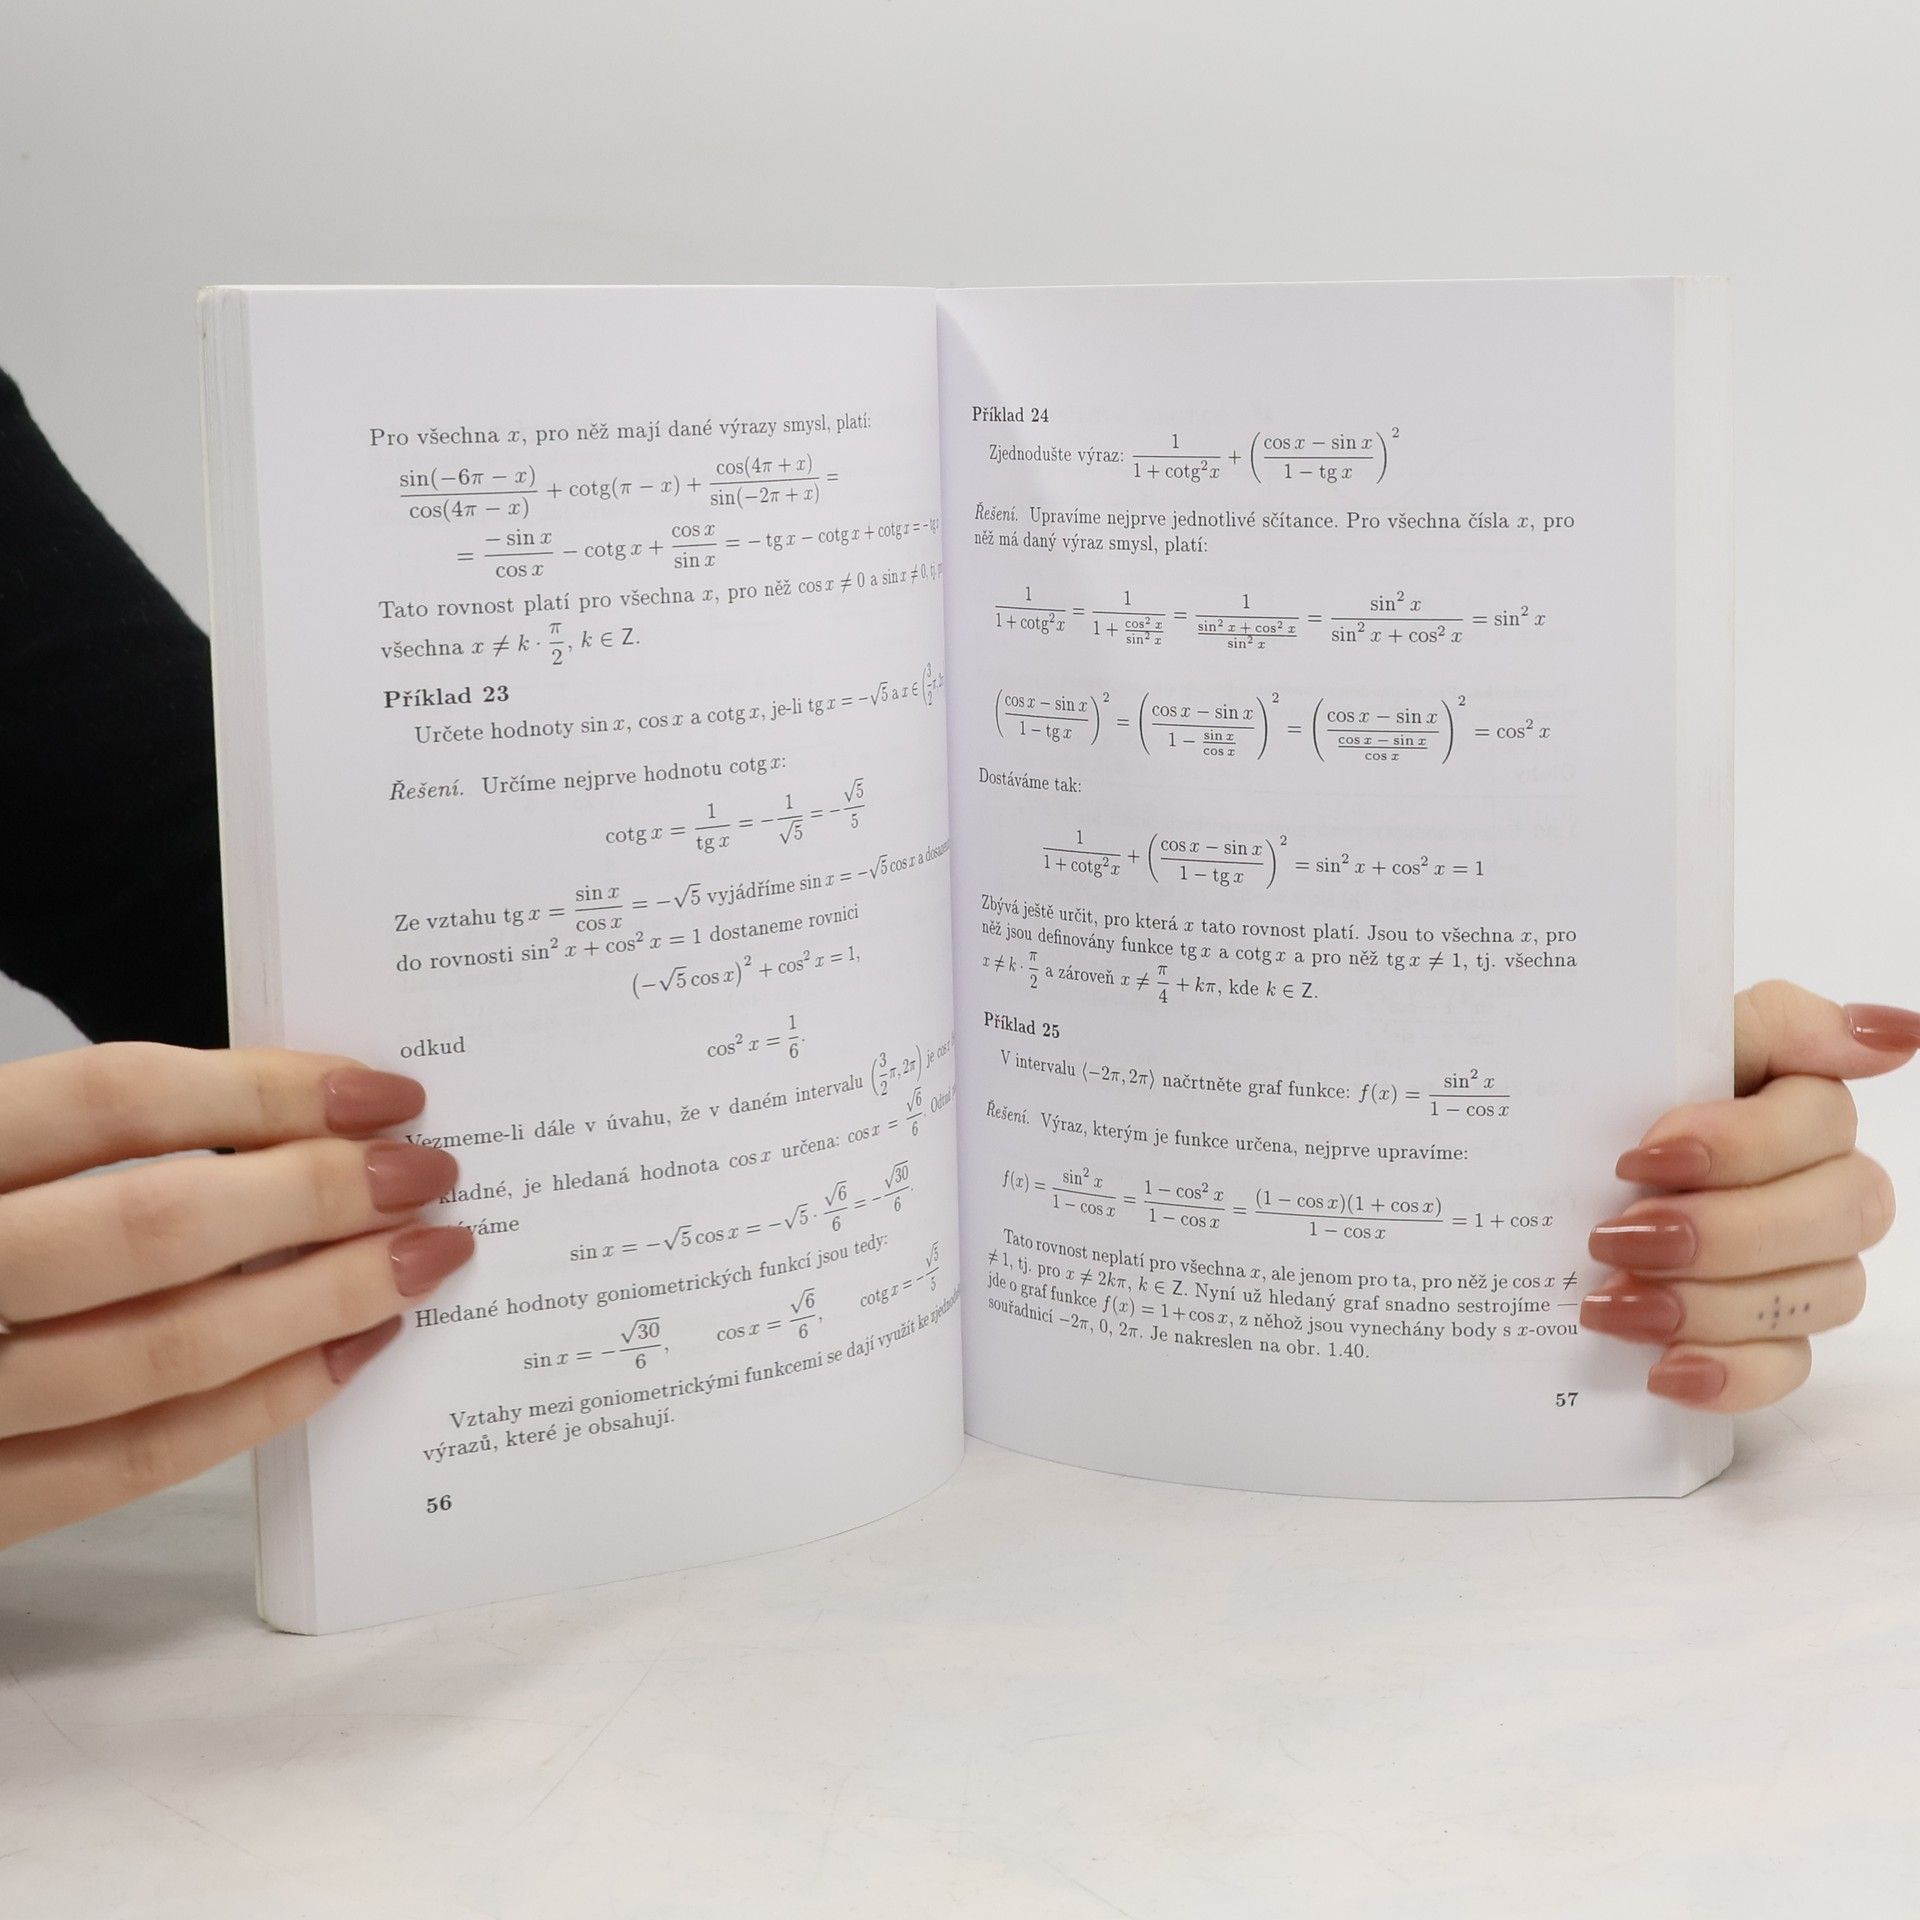 Pro všechna x, pro něž mají dané výrazy smysl, platí:
sin(−6π − x)/cos(4π − x) + cotg(π − x) + cos(4π + x)/sin(−2π + x) =
= −sin x/cos x − cotg x + cos x/sin x = − tg x − cotg x + cotg x = − tg x
Tato rovnost platí pro všechna x, pro něž cos x ≠ 0 a sin x ≠ 0, tj.
všechna x ≠ k · π/2, k ∈ Z.
Příklad 23
Určete hodnoty sin x, cos x a cotg x, je-li tg x = −√5 a x ∈ (3/2 π, 2π
Řešení. Určíme nejprve hodnotu cotg x:
cotg x = 1/tg x = −1/√5 = −√5/5
Ze vztahu tg x = sin x/cos x = −√5 vyjádříme sin x = −√5 cos x a
do rovnosti sin² x + cos² x = 1 dostaneme rovnici
(−√5 cos x)² + cos² x = 1,
odkud cos² x = 1/6.
Vezmeme-li dále v úvahu, že v daném intervalu (3/2 π, 2π) je cos x
kladné, je hledaná hodnota cos x určena: cos x = √6/6. Odtud
váme
sin x = −√5 cos x = −√5 · √6/6 = −√30/6.
Hledané hodnoty goniometrických funkcí jsou tedy:
sin x = −√30/6, cos x = √6/6, cotg x = −√5/5
Vztahy mezi goniometrickými funkcemi se dají využít ke
výrazů, které je obsahují.
56
Příklad 24
Zjednodušte výraz: 1/(1 + cotg² x) + ((cos x − sin x)/(1 − tg x))²
Řešení. Upravíme nejprve jednotlivé sčítance. Pro všechna čísla x, pro
něž má daný výraz smysl, platí:
1/(1 + cotg² x) = 1/(1 + cos² x/sin² x) = 1/((sin² x + cos² x)/sin² x) = sin² x/(sin² x + cos² x) = sin² x
((cos x − sin x)/(1 − tg x))² = ((cos x − sin x)/(1 − sin x/cos x))² = ((cos x − sin x)/((cos x − sin x)/cos x))² = cos² x
Dostáváme tak:
1/(1 + cotg² x) + ((cos x − sin x)/(1 − tg x))² = sin² x + cos² x = 1
Zbývá ještě určit, pro která x tato rovnost platí. Jsou to všechna x, pro
něž jsou definovány funkce tg x a cotg x a pro něž tg x ≠ 1, tj. všechna
x ≠ k · π/2 a zároveň x ≠ π/4 + kπ, kde k ∈ Z.
Příklad 25
V intervalu ⟨−2π, 2π⟩ načrtněte graf funkce: f(x) = sin² x/(1 − cos x)
Řešení. Výraz, kterým je funkce určena, nejprve upravíme:
f(x) = sin² x/(1 − cos x) = (1 − cos² x)/(1 − cos x) = (1 − cos x)(1 + cos x)/(1 − cos x) = 1 + cos x
Tato rovnost neplatí pro všechna x, ale jenom pro ta, pro něž je cos x ≠
≠ 1, tj. pro x ≠ 2kπ, k ∈ Z. Nyní už hledaný graf snadno sestrojíme —
jde o graf funkce f(x) = 1 + cos x, z něhož jsou vynechány body s x-ovou
souřadnicí −2π, 0, 2π. Je nakreslen na obr. 1.40.
57